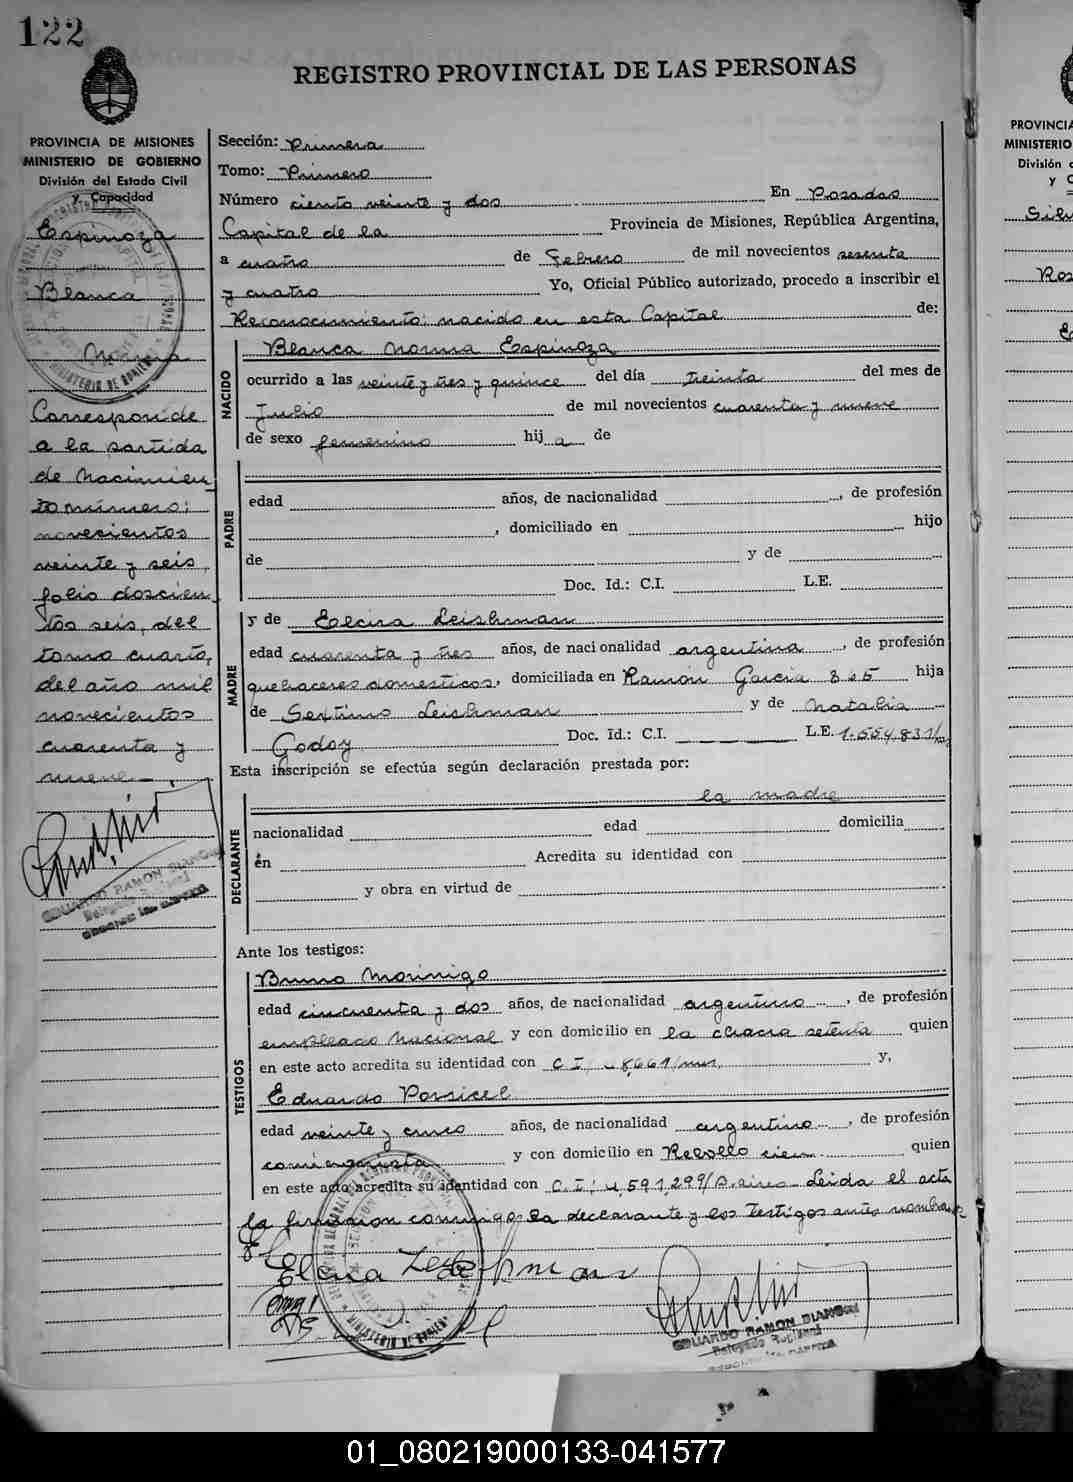 122
REGISTRO PROVINCIAL DE LAS PERSONAS
PROVINCIA DE MISIONES
MINISTERIO DE GOBIERNO
División del Estado Civil
y Capacidad
Espinoza
Blanca
Norma
Corresponde
a la partida
de Nacimien
to número:
novecientos
veinte y seis,
folio doscien
tos seis, del
tomo cuarto,
del año mil
novecientos
cuarenta y
nueve.
EDUARDO RAMON BIANCHI
Delegado Regional
Sección: Primera
Tomo: Primero
Número ciento veinte y dos En Posadas
Capital de la Provincia de Misiones, República Argentina,
a cuatro de Febrero de mil novecientos sesenta
y cuatro Yo, Oficial Público autorizado, procedo a inscribir el
Reconocimiento: nacido en esta Capital de:
NACIDO
Blanca Norma Espinoza
ocurrido a las veinte y tres y quince del día treinta del mes de
Julio de mil novecientos cuarenta y nueve
de sexo femenino hij a de
PADRE
edad años, de nacionalidad , de profesión
, domiciliado en hijo
de y de
Doc. Id.: C.I. L.E.
MADRE
y de Elcira Leishman
edad cuarenta y tres años, de nacionalidad argentina , de profesión
quehaceres domesticos, domiciliada en Ramón Garcia 305 hija
de Sextimo Leishman y de Natalia
Godoy Doc. Id.: C.I. L.E. 1.554.831/
Esta inscripción se efectúa según declaración prestada por:
DECLARANTE
la madre
nacionalidad edad domicilia
en Acredita su identidad con
y obra en virtud de
Ante los testigos:
TESTIGOS
Bruno Morinigo
edad cincuenta y dos años, de nacionalidad argentino , de profesión
empleado Nacional y con domicilio en la chacra setenta quien
en este acto acredita su identidad con C I 8,661/mnes. y,
Eduardo Porsicel
edad veinte y cinco años, de nacionalidad argentino , de profesión
y con domicilio en Rebollo cien quien
en este acto acredita su identidad con C.I: 4,591,299/B.aires Leida el acta
la firmaron conmigo la declarante y los testigos antes nombra
EDUARDO RAMON BIANCHI
Delegado Regional
PROVINCIA
MINISTERIO
División
y C
01_080219000133-041577